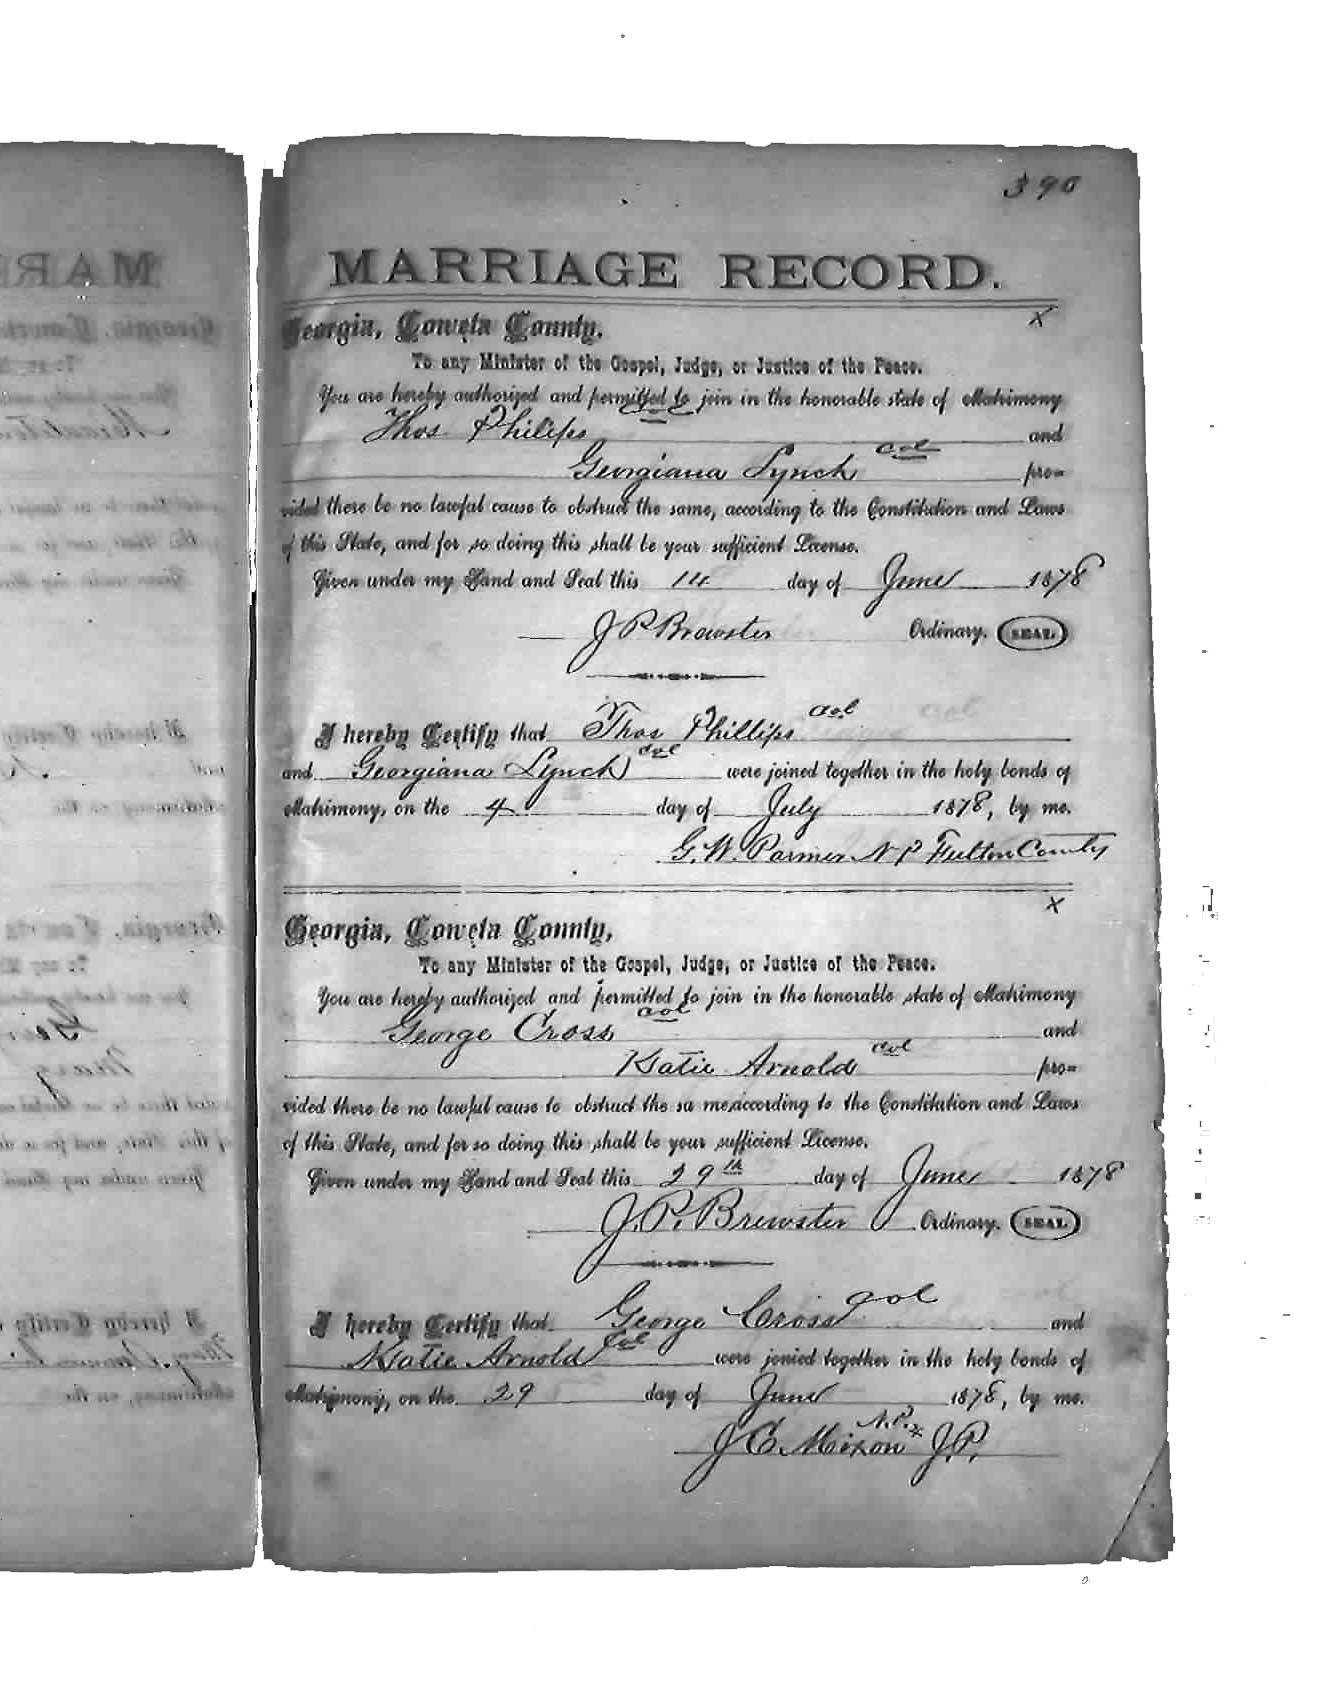 390
MARRIAGE RECORD.
x
Georgia, Coweta County.
To any Minister of the Gospel, Judge, or Justice of the Peace.
You are hereby authorized and permitted to join in the honorable state of Matrimony
Thos Philips col and
Georgiana Lynch col pro=
vided there be no lawful cause to obstruct the same, according to the Constitution and Laws
of this State, and for so doing this shall be your sufficient License.
Given under my Hand and Seal this 14 day of June 1878
J P Brewster Ordinary. SEAL.
I hereby Certify that Thos Phillips col
and Georgiana Lynch col were joined together in the holy bonds of
Matrimony, on the 4 day of July 1878, by me.
G. W. Parmer N P Fulton County
x
Georgia, Coweta County,
To any Minister of the Gospel, Judge, or Justice of the Peace.
You are hereby authorized and permitted to join in the honorable state of Matrimony
George Cross col and
Katie Arnold col pro=
vided there be no lawful cause to obstruct the sa me,according to the Constitution and Laws
of this State, and for so doing this shall be your sufficient License.
Given under my Hand and Seal this 29th day of June 1878
J. P. Brewster Ordinary. SEAL
I hereby Certify that George Cross col and
Katie Arnold Col were jonied together in the holy bonds of
Matrimony, on the 29 day of June 1878, by me.
J C. Mixon N.P. * J.P.